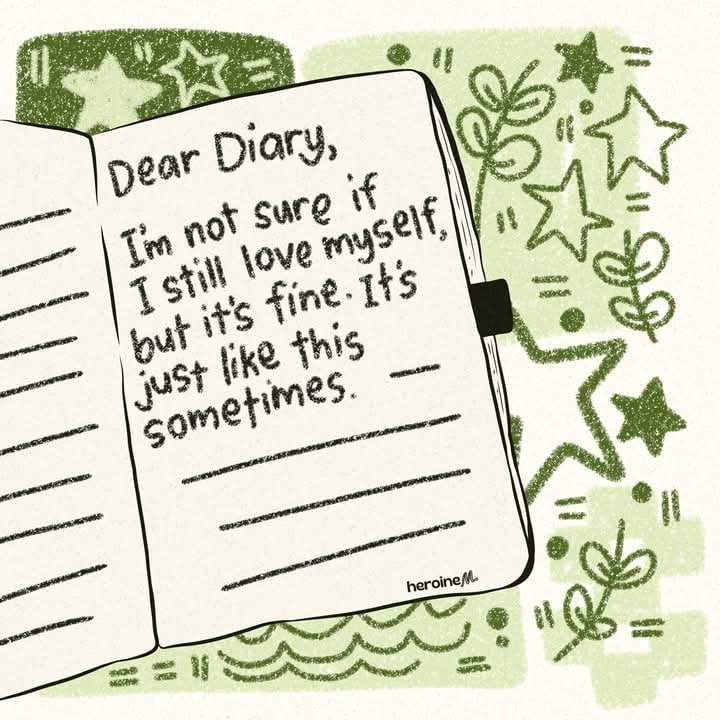 Dear Diary,
I'm not sure if
I still love myself,
but it's fine. It's
just like this
sometimes.
heroineM.